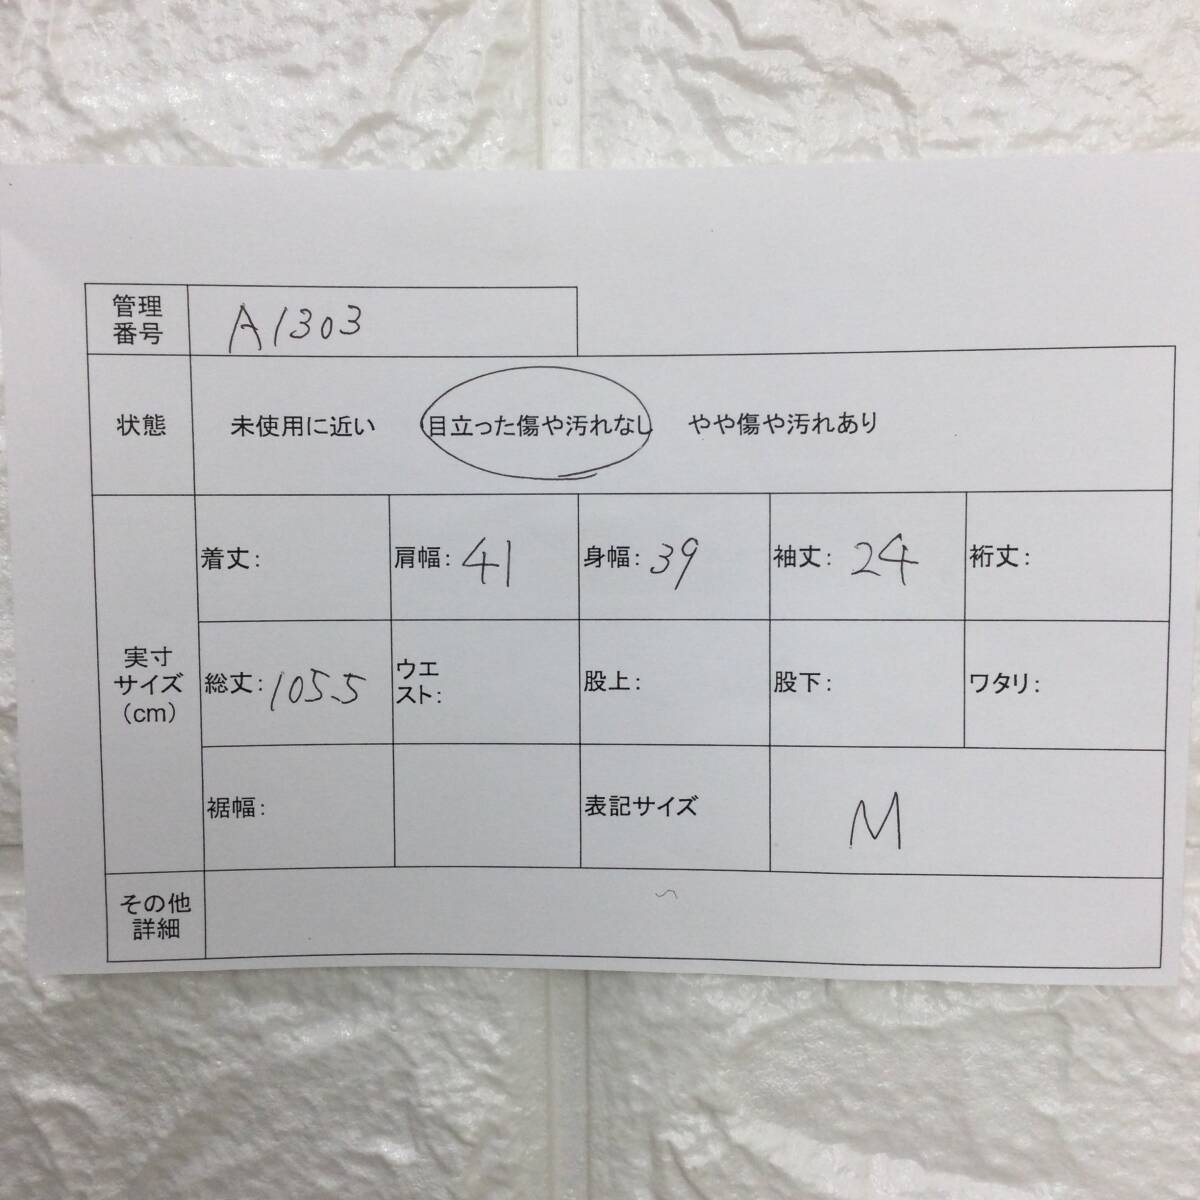 管理
番号
A1303
状態
未使用に近い 目立った傷や汚れなし やや傷や汚れあり
実寸
サイズ
(cm)
着丈: 肩幅: 41 身幅: 39 袖丈: 24 裄丈:
総丈: 105.5 ウエ
スト: 股上: 股下: ワタリ:
裾幅: 表記サイズ M
その他
詳細